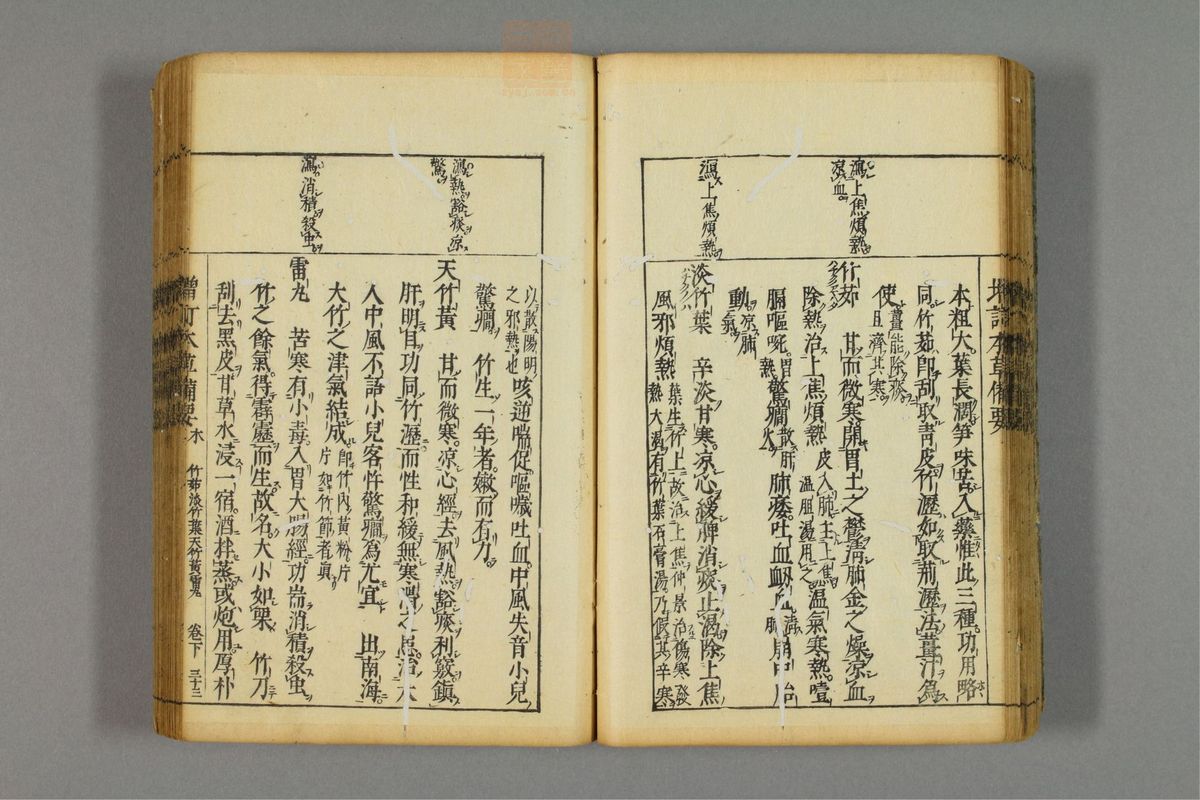 瀉上焦煩熱
涼血
瀉上焦煩熱
本粗大葉長濶笋味苦入藥惟此三種功用略
同竹茹即刮取靑皮竹瀝如取荊瀝法薑汁爲
使薑能除痰
且齊其寒
竹茹　甘而微寒開胃土之鬱淸肺金之燥涼血
除熱治上焦煩熱皮入肺主上焦
温膽湯用之温氣寒熱噎
膈嘔啘胃
熱驚癎散肝
火肺痿吐血衂血淸
肺崩中胎
動涼肺
氣
淡竹葉　辛淡甘寒涼心緩脾消痰止渴除上焦
風邪煩熱葉生竹上故治上焦仲景治傷寒發
熱大渴有竹葉石膏湯乃假其辛寒
瀉熱豁痰涼
驚
瀉消積殺虫
以散陽明
之邪熱也咳逆喘促嘔噦吐血中風失音小兒
驚癎　竹生一年者嫩而有力
天竹黃　甘而微寒涼心經去風熱豁痰利竅鎮
肝明目功同竹瀝而性和緩無寒滑之患治大
人中風不語小兒客忤驚癎爲尤宜　出南海
大竹之津氣結成即竹內黃粉片
片如竹節者眞
雷丸　苦寒有小毒入胃大腸經功耑消積殺虫
竹之餘氣得霹靂而生故名大小如栗　竹刀
刮去黑皮甘草水浸一宿酒拌蒸或炮用厚朴
增訂本草備要　木　竹茹淡竹葉天竹黃雷丸　卷下　三十三